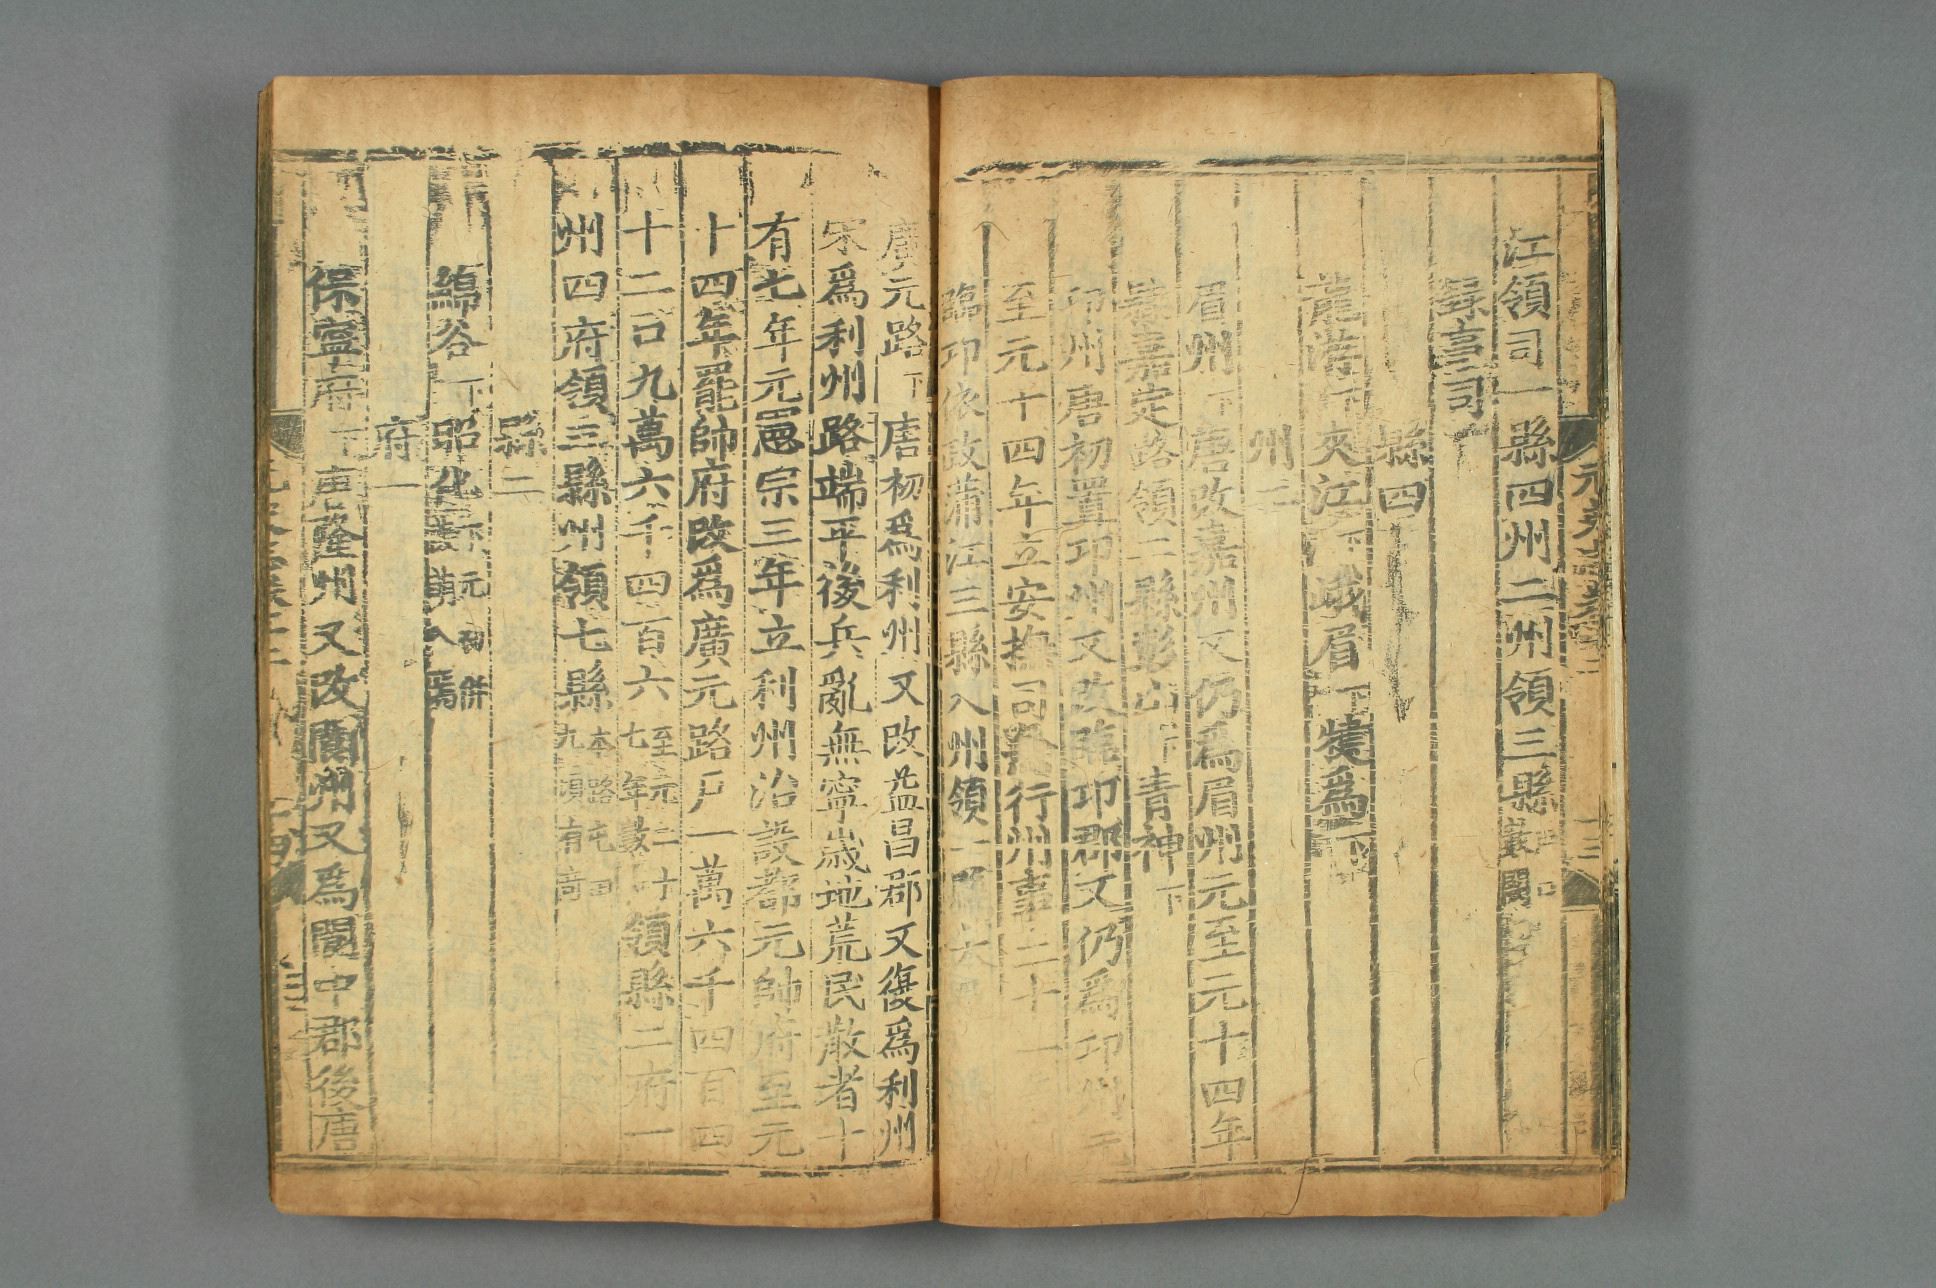 江領司一縣四州二州領三縣
錄事司
縣四
龍游下夾江下峨眉下犍爲下
州二
眉州下唐改嘉州又仍爲眉州元至元十四年
隸嘉定路領二縣彭山下青神下
邛州唐初置邛州又改臨邛郡又仍爲邛州元
至元十四年立安撫司兼行州事二十一
臨邛依政蒲江三縣入州領一縣大邑
廣元路下唐初爲利州又改益昌郡又復爲利州
宋爲利州路端平後兵亂無寧歲地荒民散者十
有七年元憲宗三年立利州治設都元帥府至元
十四年罷帥府改爲廣元路戶一萬六千四百四
十二口九萬六千四百六至元二十七年數領縣二府一
州四府領三縣州領七縣本路屯田九頃有竒
縣二
綿谷下昭化下元初併葭萌入焉
府一
保寧府下唐隆州又改閬州又爲閬中郡後唐